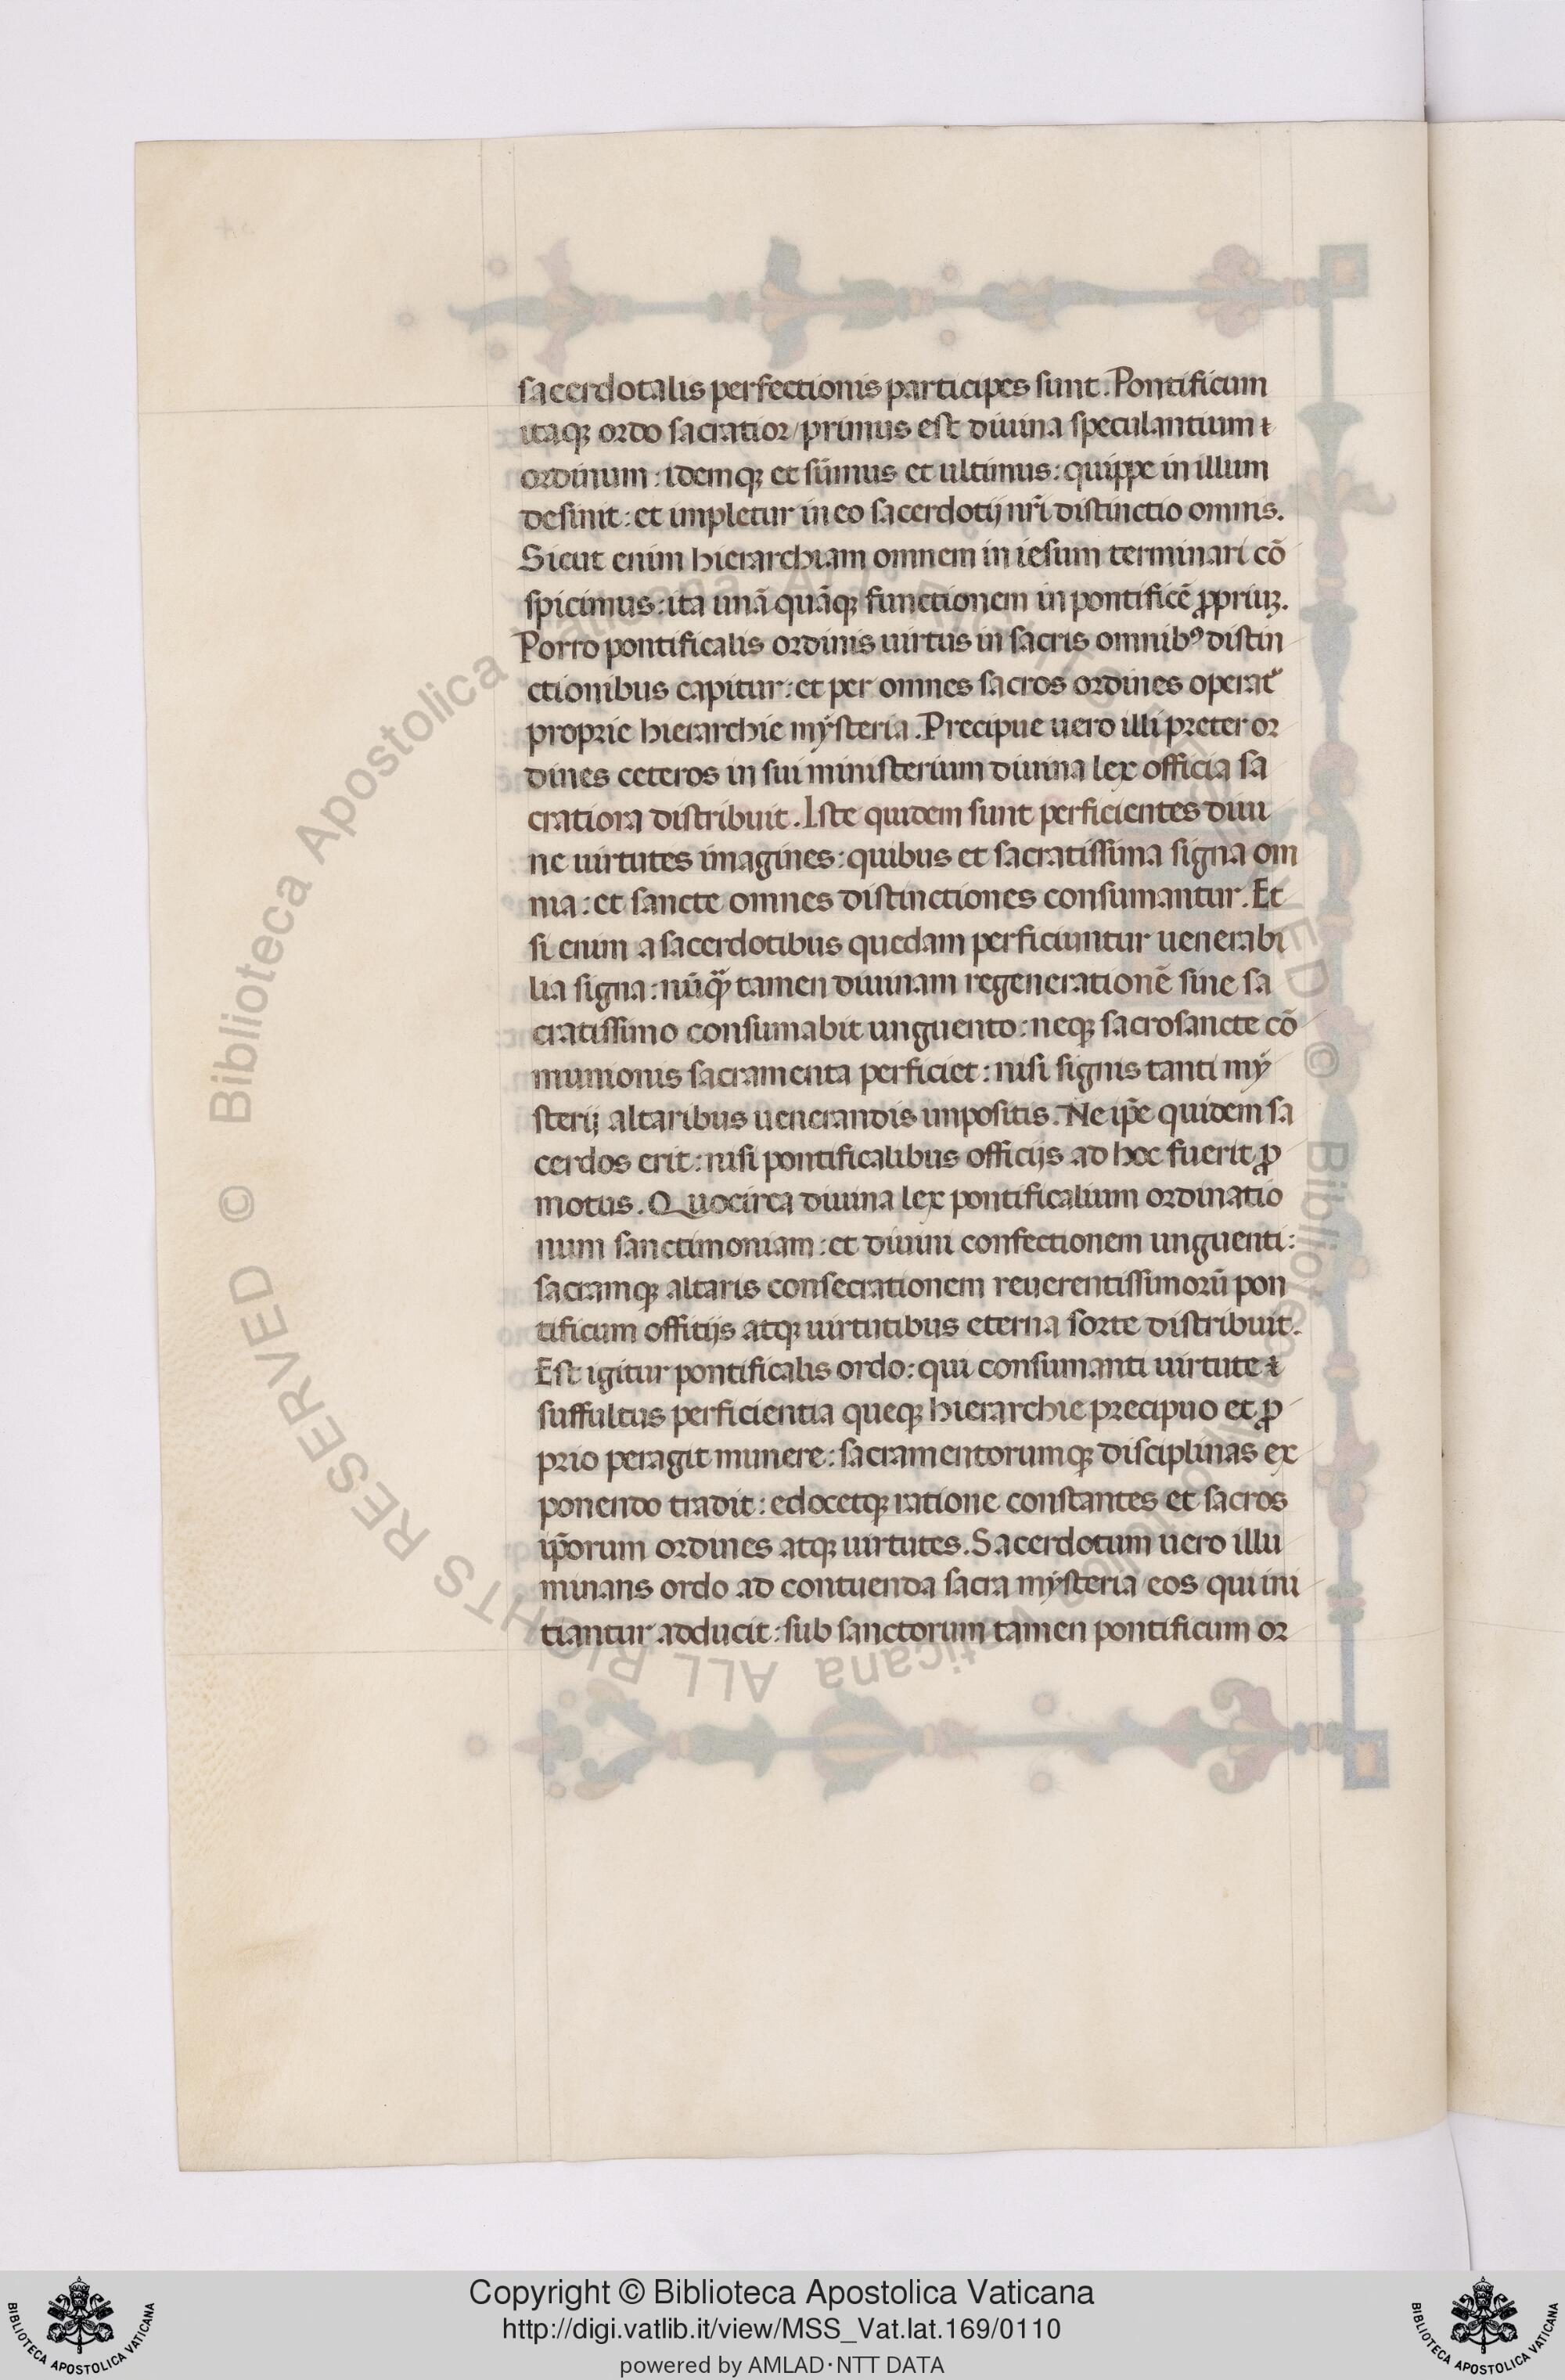 sacerdotalis perfectionis participes sunt. Pontificum
itaqꝫ ordo sacratior / primus est diuina speculantium ɫ
ordinum: idemqꝫ et sūmus et ultimus: quippe in illum
desinit: et impletur in eo sacerdotij nr̄i distinctio omnis.
Sicut enim hierarchiam omnem in iesum terminari cō
spicimus: ita unā quāqꝫ functionem in pontificē ꝓpriuꝫ.
Porro pontificalis ordinis uirtus in sacris omnibꝰ distin
ctionibus capitur: et per omnes sacros ordines operat᷑
proprie hierarchie mẏsteria. Precipue uero illi preter or
dines ceteros in sui ministerium diuina lex officia sa
cratiora distribuit. Iste quidem sunt perficientes diui
ne uirtutes imagines: quibus et sacratissima signa om
nia: et sancte omnes distinctiones consumantur. Et
si enim a sacerdotibus quedam perficiuntur uenerabi
lia signa: nūqᷓ tamen diuinam regenerationē sine sa
cratissimo consumabit unguento: neqꝫ sacrosancte cō
munionis sacramenta perficiet: nisi signis tanti mẏ
sterij altaribus uenerandis impositis. Ne ip̄e quidem sa
cerdos erit: nisi pontificalibus officijs ad hoc fuerit ꝓ
motus. Quocirca diuina lex pontificalium ordinatio
num sanctimoniam: et diuini confectionem unguenti:
sacramqꝫ altaris consecrationem reuerentissimorū pon
tificum offitijs atqꝫ uirtutibus eterna sorte distribuit.
Est igitur pontificalis ordo: qui consumanti uirtute ɫ
suffultus perficientia queqꝫ hierarchie precipuo et ꝓ
prio peragit munere: sacramentorumqꝫ disciplinas ex
ponendo tradit: edocetqꝫ ratione constantes et sacros
ip̄orum ordines atqꝫ uirtutes. Sacerdotum uero illu
minans ordo ad contuenda sacra mẏsteria / eos / qui ini
tiantur adducit: sub sanctorum tamen pontificum or
© Biblioteca Apostolica Vaticana ALL RIGHTS RESERVED © Biblioteca Apostolica Vaticana ALL RIGHTS RESERVED
Copyright © Biblioteca Apostolica Vaticana
http://digi.vatlib.it/view/MSS_Vat.lat.169/0110
powered by AMLAD·NTT DATA
BIBLIOTECA APOSTOLICA VATICANA
BIBLIOTECA APOSTOLICA VATICANA